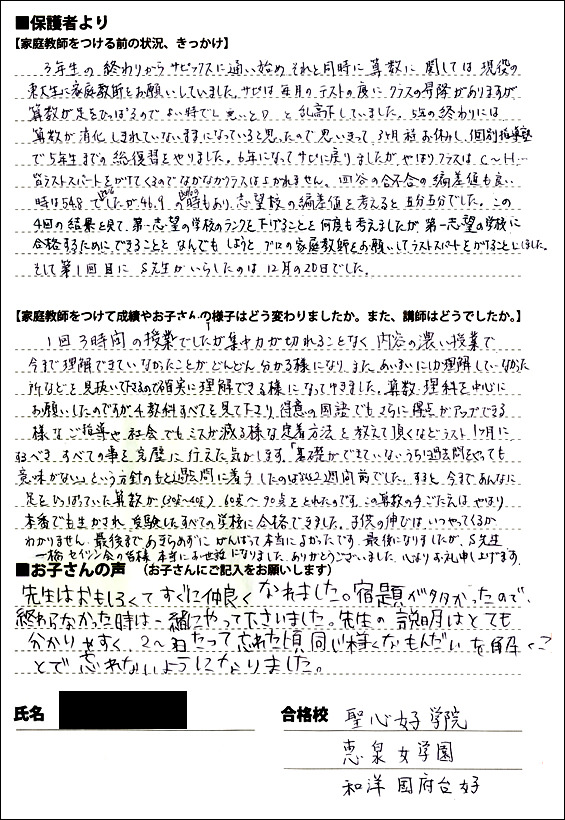 ■保護者より
【家庭教師をつける前の状況、きっかけ】
3年生の終わりからサピックスに通い始めそれと同時に算数に関しては現役の
東大生に家庭教師をお願いしていました。サピは毎月のテストの度にクラスの昇降がありますが
算数が足をひっぱるのでよい時でし といとDと乱高下していました。5年の終わりには
算数が消化しきれていないままになっていると思ったので思いきって3ヶ月程お休みし、個別指導塾
で5年生までの総復習をやりました。6年になってサピに戻りましたがやはりクラスはC〜H…
皆ラストスパートをかけてくるのでなかなかクラスは上がれません。四谷の合不合の偏差値も良い
時は54.8でしたが46.9の時もあり、志望校の偏差値を考えると五分五分でした。この
4回の結果を見て、第一志望の学校のランクを下げることを何度も考えましたが、第一志望の学校に
合格するためにできることをなんでもしようとプロの家庭教師をお願いしてラストスパートをかけることにしました。
そして第1回目にS先生がいらしたのは12月の20日でした。
【家庭教師をつけて成績やお子さんの様子はどう変わりましたか。また、講師はどうでしたか。】
1回3時間の授業でしたが集中力が切れることなく内容の濃い授業で
今まで理解できていなかったことがどんどん分かる様になり、また、あいまいにしか理解していなかった
所などを見抜いて下さるので確実に理解できる様になってゆきました。算数、理科を中心に
お願いしたのですが4教科すべてを見て下さり、得意の国語でもさらに得点がアップできる
様なご指導や、社会でもミスが減る様な定着方法を教えて頂くなどラスト1ヶ月に
するべきすべての事を完璧に行えた気がします。「基礎ができていないうちは過去問をやっても
意味がない」という方針のもと過去問に着手したのは2週間前でした。すると、今まであんなに
足をひっぱっていた算数が(30点〜40点)60点〜90点をとれたのです。この算数の手ごたえはやはり
本番でも生かされ、受験したすべての学校に合格できました。子供の伸びはいつやってくるか
わかりません。最後まであきらめずにがんばって本当によかったです。最後になりましたが、S先生
一橋セイシン会の皆様、本当にお世話になりました。ありがとうございました。心よりお礼申し上げます。
■お子さんの声　（お子さんにご記入をお願いします）
先生はおもしろくてすぐに仲良くなれました。宿題が多かったので、
終わらなかった時は一緒にやって下さいました。先生の説明はとても
分かりやすく、2〜3日たって忘れた頃、同じ様なもんだいを解くこ
とで忘れないようになりました。
氏名
合格校 聖心女子学院
恵泉女学園
和洋国府台女子